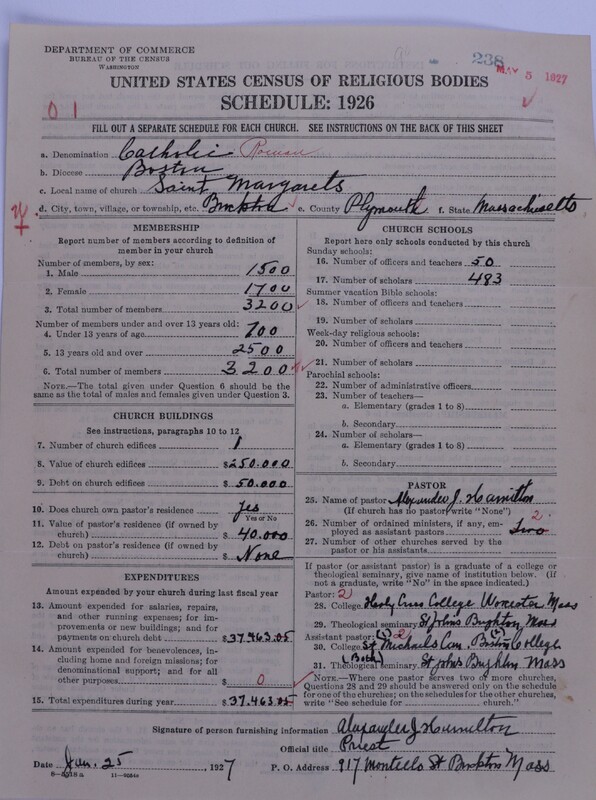 DEPARTMENT OF COMMERCE
BUREAU OF THE CENSUS
WASHINGTON
238
MAY 5 1927
UNITED STATES CENSUS OF RELIGIOUS BODIES
SCHEDULE: 1926
0 1
FILL OUT A SEPARATE SCHEDULE FOR EACH CHURCH. SEE INSTRUCTIONS ON THE BACK OF THIS SHEET
a. Denomination Catholic Roman
b. Diocese Boston
c. Local name of church Saint Margarets
d. City, town, village, or township, etc. Brockton e. County Plymouth f. State Massachusetts
MEMBERSHIP
Report number of members according to definition of
member in your church
Number of members, by sex:
1. Male 1500
2. Female 1700
3. Total number of members 3200
Number of members under and over 13 years old:
4. Under 13 years of age 700
5. 13 years old and over 2500
6. Total number of members 3200
NOTE.—The total given under Question 6 should be
same as the total of males and females given under Question 3.
CHURCH BUILDINGS
See instructions, paragraphs 10 to 12
7. Number of church edifices 1
8. Value of church edifices $250.000
9. Debt on church edifices $50.000
10. Does church own pastor's residence Yes
Yes or No
11. Value of pastor's residence (if owned by
church) $40.000
12. Debt on pastor's residence (if owned by
church) $None
EXPENDITURES
Amount expended by your church during last fiscal year
13. Amount expended for salaries, repairs,
and other running expenses; for im-
provements or new buildings; and for
payments on church debt $37.463.05
14. Amount expended for benevolences, in-
cluding home and foreign missions; for
denominational support; and for all
other purposes $ 0
15. Total expenditures during year $37.463.05
CHURCH SCHOOLS
Report here only schools conducted by this church
Sunday schools:
16. Number of officers and teachers 50
17. Number of scholars 483
Summer vacation Bible schools:
18. Number of officers and teachers
19. Number of scholars
Week-day religious schools:
20. Number of officers and teachers
21. Number of scholars
Parochial schools:
22. Number of administrative officers
23. Number of teachers—
a. Elementary (grades 1 to 8)
b. Secondary
24. Number of scholars—
a. Elementary (grades 1 to 8)
b. Secondary
PASTOR
25. Name of pastor Alexander J. Hamilton
(If church has no pastor write "None")
26. Number of ordained ministers, if any, em-
ployed as assistant pastors Two 2
27. Number of other churches served by the
pastor or his assistants
If pastor (or assistant pastor) is a graduate of a college or
theological seminary, give name of institution below. (If
not a graduate, write "No" in the space indicated.)
Pastor: 2
28. College Holy Cross College Worcester Mass
29. Theological seminary St Johns Brighton Mass
Assistant pastor: (1) 2 (2)
30. College St Michaels Can. Boston College
(Both)
31. Theological seminary St Johns Brighton Mass
NOTE.—Where one pastor serves two or more churches,
Questions 28 and 29 should be answered only on the schedule
for one of the churches; on the schedules for the other churches,
write "See schedule for church."
Signature of person furnishing information Alexander J Hamilton
Official title Priest
Date Jan. 25, 1927 P. O. Address 917 Montello St Brockton Mass